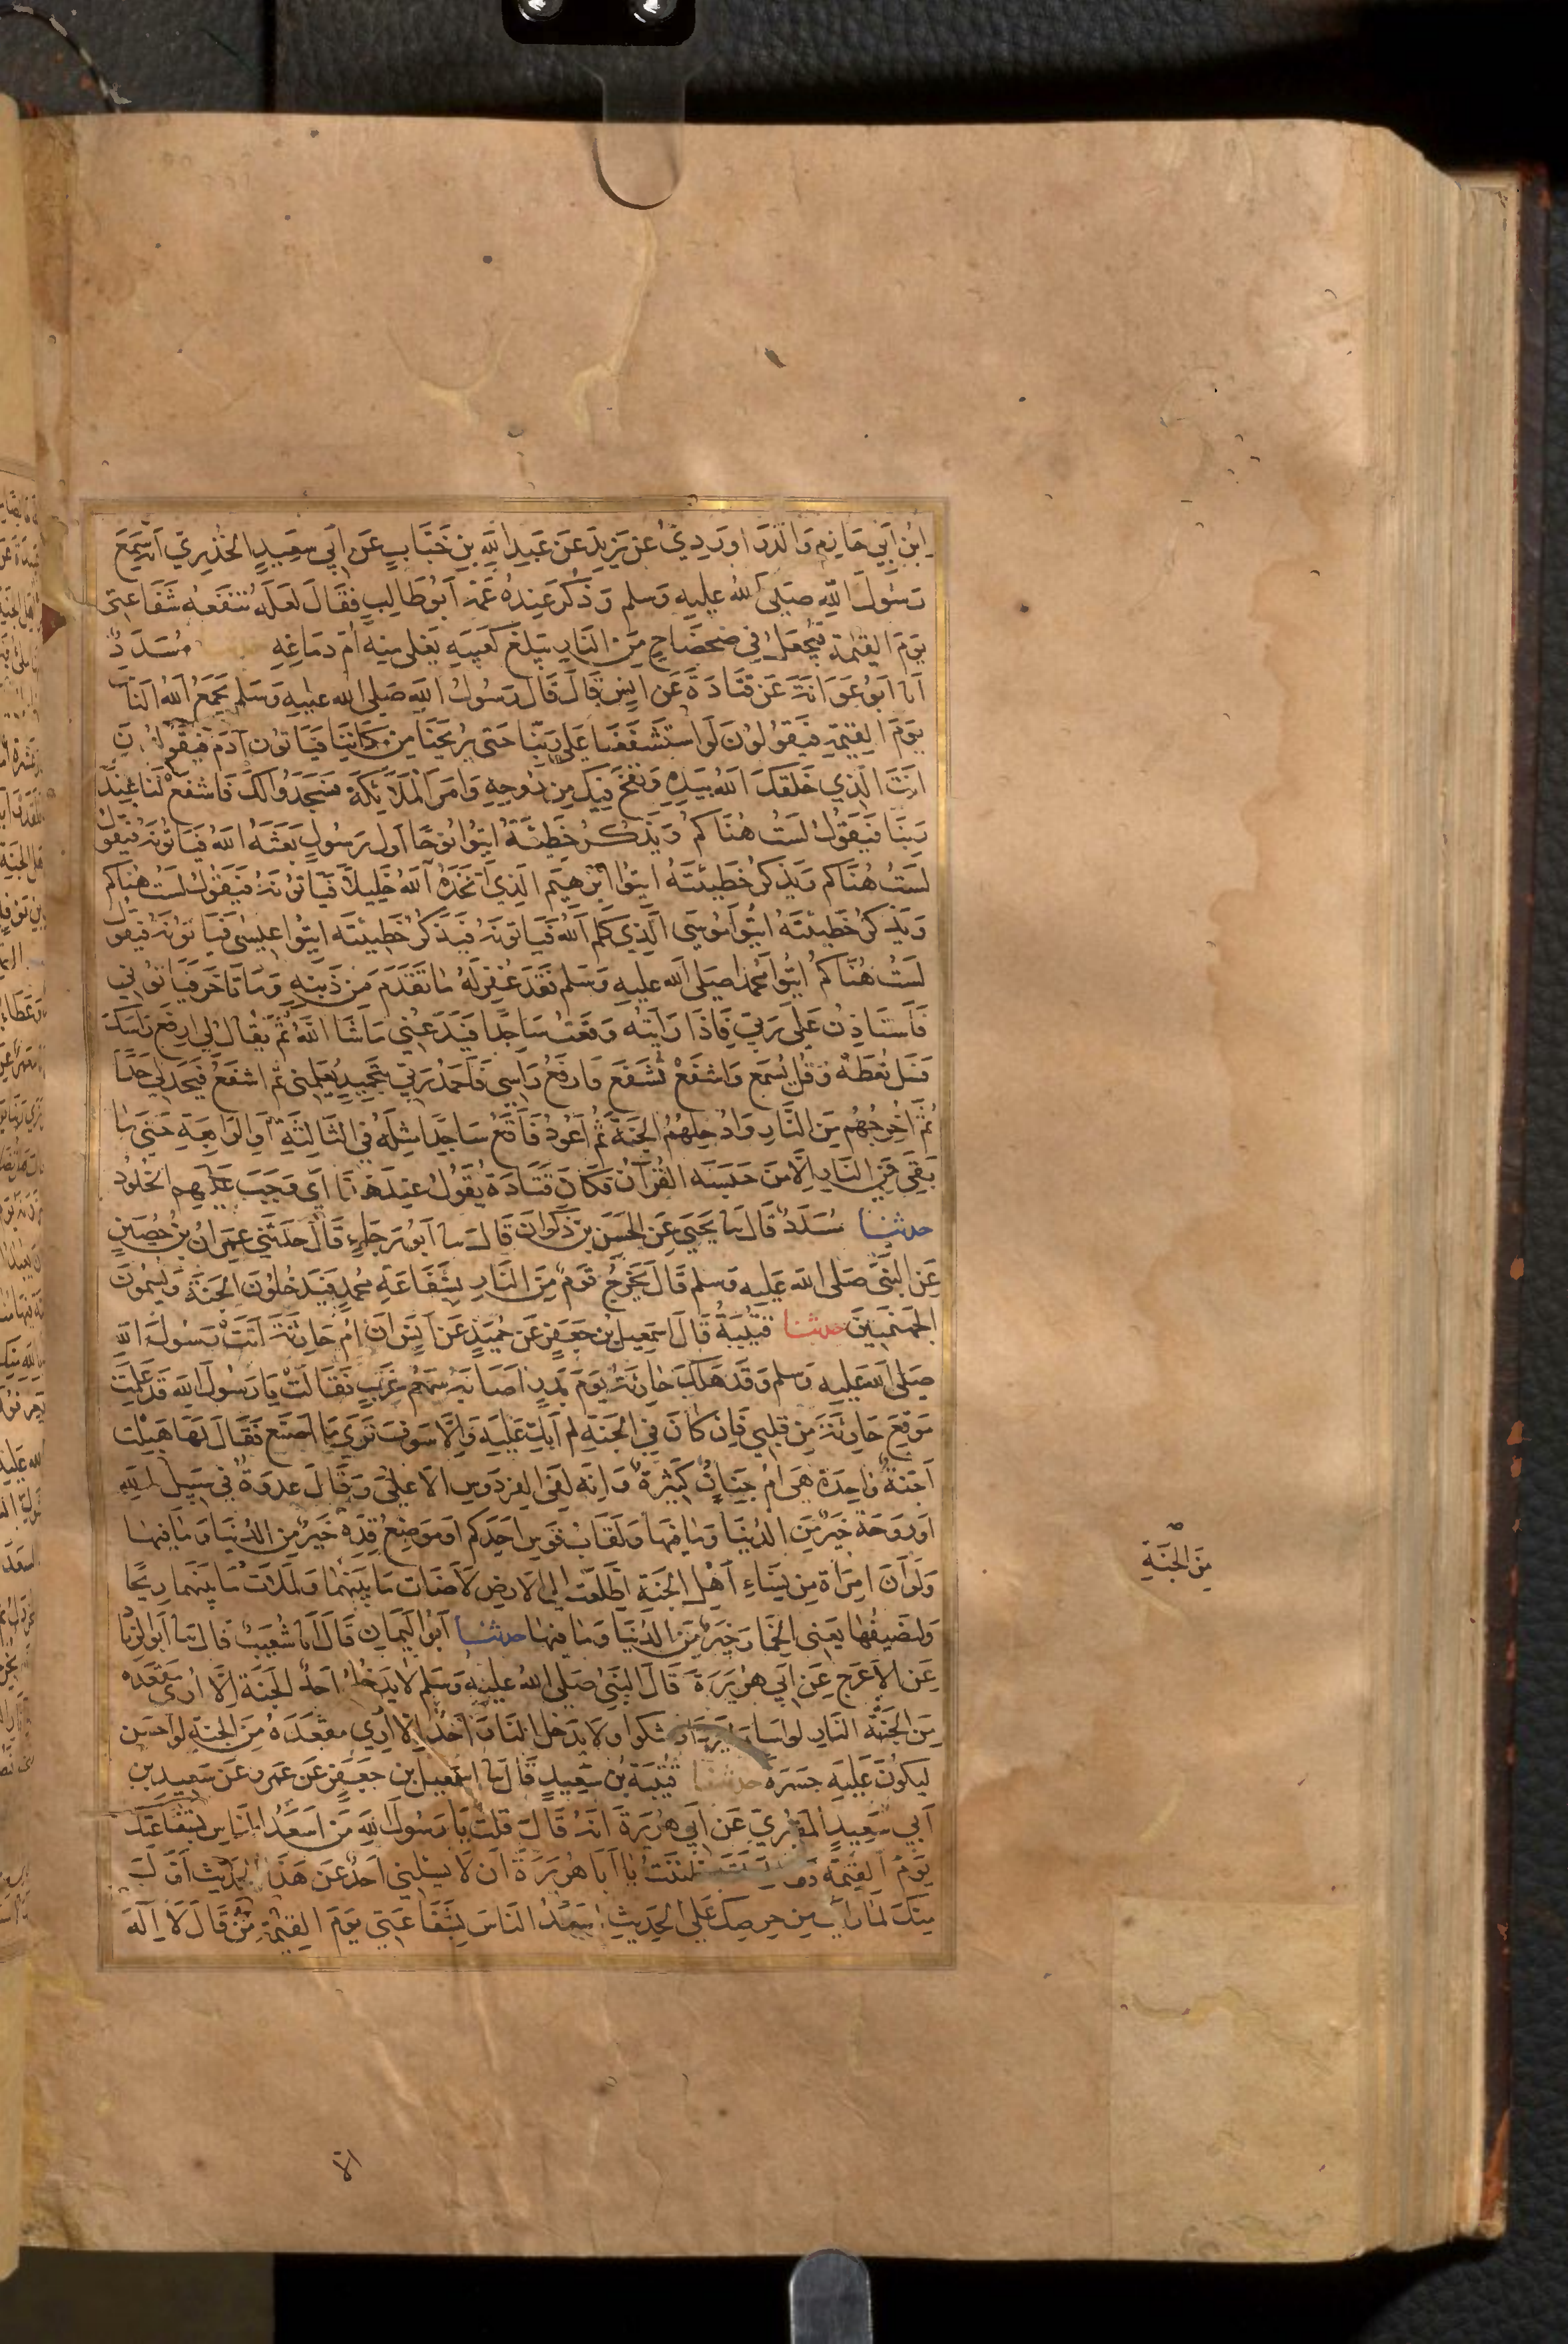 ابْن أَبِي حَازِمٍ وَالدَّرَاوَرْدِيُّ عَن يَزِيدَ عَن عَبْدِ اللهِ بن خَبَّابٍ عَن أَبِي سَعِيدٍ الخُدْرِيّ أنه سَمِعَ
رَسُولَ اللهِ صَلى الله عليهِ وَسَلم وَذُكرَ عِندَهُ عَمُّه أبُو طَالِبٍ فقَالَ لعَلَّه تنفَعُه شَفَاعَتي
يَوْمَ القِيمَةِ فَيُجعَلُ فِي ضَحضَاحٍ مِنَ النَّارِ يَبلغُ كَعبَيهِ يَغلى مِنه أُمُّ دمَاغِهِ مُسَدَّدٌ
أنا أبُو عَوَانَةَ عَن قتَادَةَ عَن أنس قَالَ قَالَ رَسُولُ اللهِ صَلى الله عليهِ وَسَلم يَجمَعُ اللهُ النَّاسَ
يَوْمَ القِيمَةِ فيَقُولُونَ لَوِ استَشْفَعنَا عَلى رَبّنَا حَتى يُرِيحَنَا مِن مَكَانِنَا فيَأتُون آدَمَ فيَقُولُونَ
أنتَ الَّذِي خَلقَكَ اللهُ بيَدِهِ وَنفَخَ فِيكَ مِن رُوحِهِ وَامَرَ المَلائِكَة فسَجَدُوا لَكَ فَاشفَعْ لَنَا عِندَ
رَبِنَا فَيَقُولُ لَستُ هُنَاكمْ وَيَذْكُرُ خَطِيئَتَهُ ايتُوا نُوحًا أول رَسُولٍ بَعَثَهُ اللهُ فيَأتُونَهُ فيَقُولُ
لَستُ هُنَاكم وَيَذكرُ خَطِيئتَهُ ايتُوا ابْرهِيمَ الَّذِي اتَّخَذَهُ اللهُ خَلِيلاً فيَأتُونَهُ فيَقُولُ لَستُ هُنَاكم
وَيَذكرُ خَطِيئتَهُ ايتُوا مُوسَى الَّذِي كَلَّمَ اللهُ فيَأتونَهُ فيَذكرُ خَطِيئتَه ايتُوا عِيسى فيَأتُونَهُ فيَقُولُ
لَستُ هُنَاكمُ ايتُوا مُحمدًا صَلى الله عليهِ وَسَلم فَقَد غُفِرَ لَهُ مَا تقَدَمَ مِن ذَنبِهِ وَمَا تأخَّرَ فيَأتُونِي
فأستَاذِنُ عَلى رَبي فَإذَا رَايتُه وَقعتُ سَاجِدًا فيَدَعُنِي مَا شَا اللهُ ثُمَّ يُقَالُ لِي ارفَع رَاسَكَ
وَسَل تُعطَهْ وَقُل يُسْمَع وَاشفَعْ تُشَفَع فأرفَعُ رَاسِي فَاحمَدُ رَبّي بتَحمِيدٍ يُعَلِّمُنِي ثم اشفَعُ فيَحُدُّ لِي حَدًا
ثُمَّ أُخرِجُهُم مِنَ النَّارِ وَادْخِلهُمُ الجَنَةَ ثُم أعُودُ فَأقَعُ سَاجِدًا مِثلَهُ في الثَّالِثَةِ أوِ الرَّابِعَةِ حَتى مَا
بَقِيَ فِي النَارِ إلَّا مَن حَبَسَه القُرآنُ فكَانَ قتَادَة يَقُولُ عِندَ هذا أي وَجَبَ عَليهِم الخُلُودُ
حدثنا مُسَدَّدٌ قَالَ نا يَحيَى عَنِ الحَسَن بنِ ذَكوَانَ قَالَ نا أبُو رَجَاءٍ قَالَ حَدثَني عِمرَانُ بنُ حُصَينٍ
عَنِ النَّبيِّ صَلى الله عَليهِ وَسلم قَالَ يَخرُجُ قَومٌ مِنَ النَّارِ بشَفَاعَةِ مُحمدٍ فيَدخُلُونَ الجَنَةَ وَيُسَمونَ
الجَهَنميينَ حدثنا قُتَيبَةُ قَالَ اسمعيل بن جَعفَرٍ عَن حُمَيدٍ عَن أنس أنَّ أُمَّ حَارِثَةَ أتَتْ رَسُولَ اللهِ
صَلى الله عليهِ وَسلم وَقَد هَلكَ حَارِثَةُ يَوْمَ بَدرٍ أصَابَهُ سَهمٌ غَربٌ فَقَالَتْ يَا رَسُولَ اللهِ قَد عَلِمتَ
مَوْقِعَ حَارِثَةَ مِن قَلبِي فَإن كَانَ فِي الجَنَةِ لم أبكِ عَليهِ وَإلَّا سَوفَ تَرَي مَا أصنَع فَقَالَ لَهَا هَبِلتِ
أجَنةٌ وَاحِدَةٌ هِيَ أمْ جِنَانٌ كَثِيرَةٌ وَإنه لفِي الفِردَوسِ الأعلى وَقَالَ غدوَةٌ في سَبِيلِ اللهِ
أو رَوحَة خَيرٌ مِنَ الدُنيَا وَمَا فِيهَا وَلَقَابُ قَوسِ أحَدِكم أو مَوضِعُ قِدِّهِ خَيرٌ مِنَ الدُنيَا وَمَا فِيهَا
وَلَو أنَّ امرَأة مِن نِسَاءِ أهلِ الجَنَةِ اطَّلَعَت إلَى الأرضِ لأضَات مَا بَينَهُمَا وَلَمَلأتْ مَا بَينَهمَا رِيحًا
وَلَنَصِيفُهَا يَعنِي الخِمَار خَيرٌ مِنَ الدُّنيَا وَمَا فيهَا حدثنا أبُو اليَمَانِ قَالَ أنا شُعَيبٌ قَالَ نا أبُو الزِّنادِ
عَنِ الأعرَجِ عَن أبي هُرَيرَةَ قَالَ النَّبيُّ صَلى الله عليهِ وَسَلم لا يَدخُلُ أحَدٌ الجَنَةَ إلَّا أُرِيَ مَقعَدَهُ
مِنَ الجَنَّةِ النَارِ لو أسَا ليَزدَادَ شكرا وَلَا يَدخُل النَارَ أحَدٌ إلَّا أُرِيَ مقعَدَهُ مِنَ الجَنَةِ لو أحسَن
لِيَكونَ عَليهِ حَسرَة حدثنا قُتَيبَة بنُ سَعِيدٍ قَالَ نا اسمعيل بن جَعفَرٍ عَن عَمرٍو عَن سَعِيدِ بنِ
أبي سَعِيدٍ المَقبُرِيّ عَن أبي هُرَيرَةَ أنَهُ قَالَ قُلتُ يَا رَسُولَ اللهِ مَن أسعَدُ النَّاسِ بشَفَاعَتِكَ
يَوْمَ القِيمَة ظَنَنتُ يَا أبَا هُرَيرَةَ أن لَا يَسلنِي أحَدٌ عَن هَذَا الحَدِيثِ أوَّلَ
مِنكَ لمَا رَأيتُ مِن حِرصِكَ عَلى الحَدِيثِ أسعَدُ النَاسِ بشَفَاعَتِي يَوْمَ القِيمَةِ مَن قَالَ لَا إلَهَ
مِنَ الجَنَّةِ
إلا